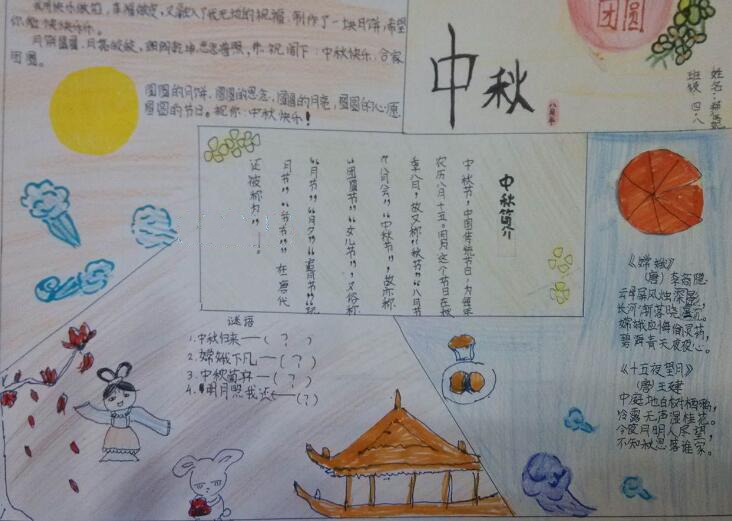 我用快乐做馅，幸福做皮，又融入了我无边的祝福，制作了一块月饼，希望
你能快快乐乐。
月饼圆圆，月亮皎皎，朗朗乾坤，思念普照，恭祝阁下：中秋快乐，合家
团圆。
圆圆的月饼，圆圆的思念，圆圆的月亮，圆圆的心愿
圆圆的节日。祝你：中秋快乐！
团圆
中秋
姓名：
班级 四.八
中秋简介
中秋节，中国传统节日，为每年
农历八月十五。因为这个节日在秋
季八月，故又称“秋节”“八月节
“八月会”“中秋节”，故亦称
“团圆节”“女儿节”，又俗称
“月节”“月夕”“追月节”“玩
月节”“节节”，在唐代
还被称为“……。
谜语
1.中秋归来——（ ? ）
2.嫦娥下凡——（ ? ）
3.中秋菊开——（ ? ）
4.明月照我还——（?）
《嫦娥》
（唐）李商隐
云母屏风烛深影，
长河渐落晓星沉。
嫦娥应悔偷灵药，
碧海青天夜夜心。
《十五夜望月》
（唐）王建
中庭地白树栖鸦，
冷露无声湿桂花。
今夜月明人尽望，
不知秋思落谁家。